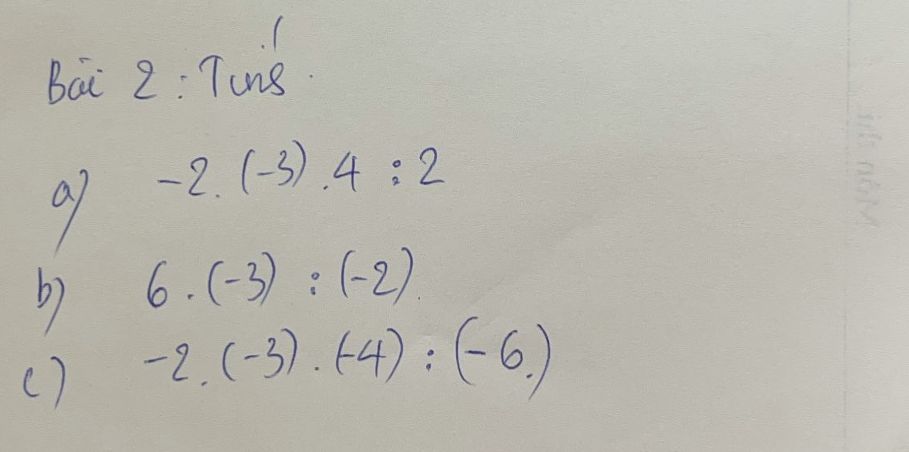 Bài 2 : Tính
a) -2. (-3) .4 : 2
b) 6 . (-3) : (-2)
c) -2. (-3) . (-4) : (-6.)